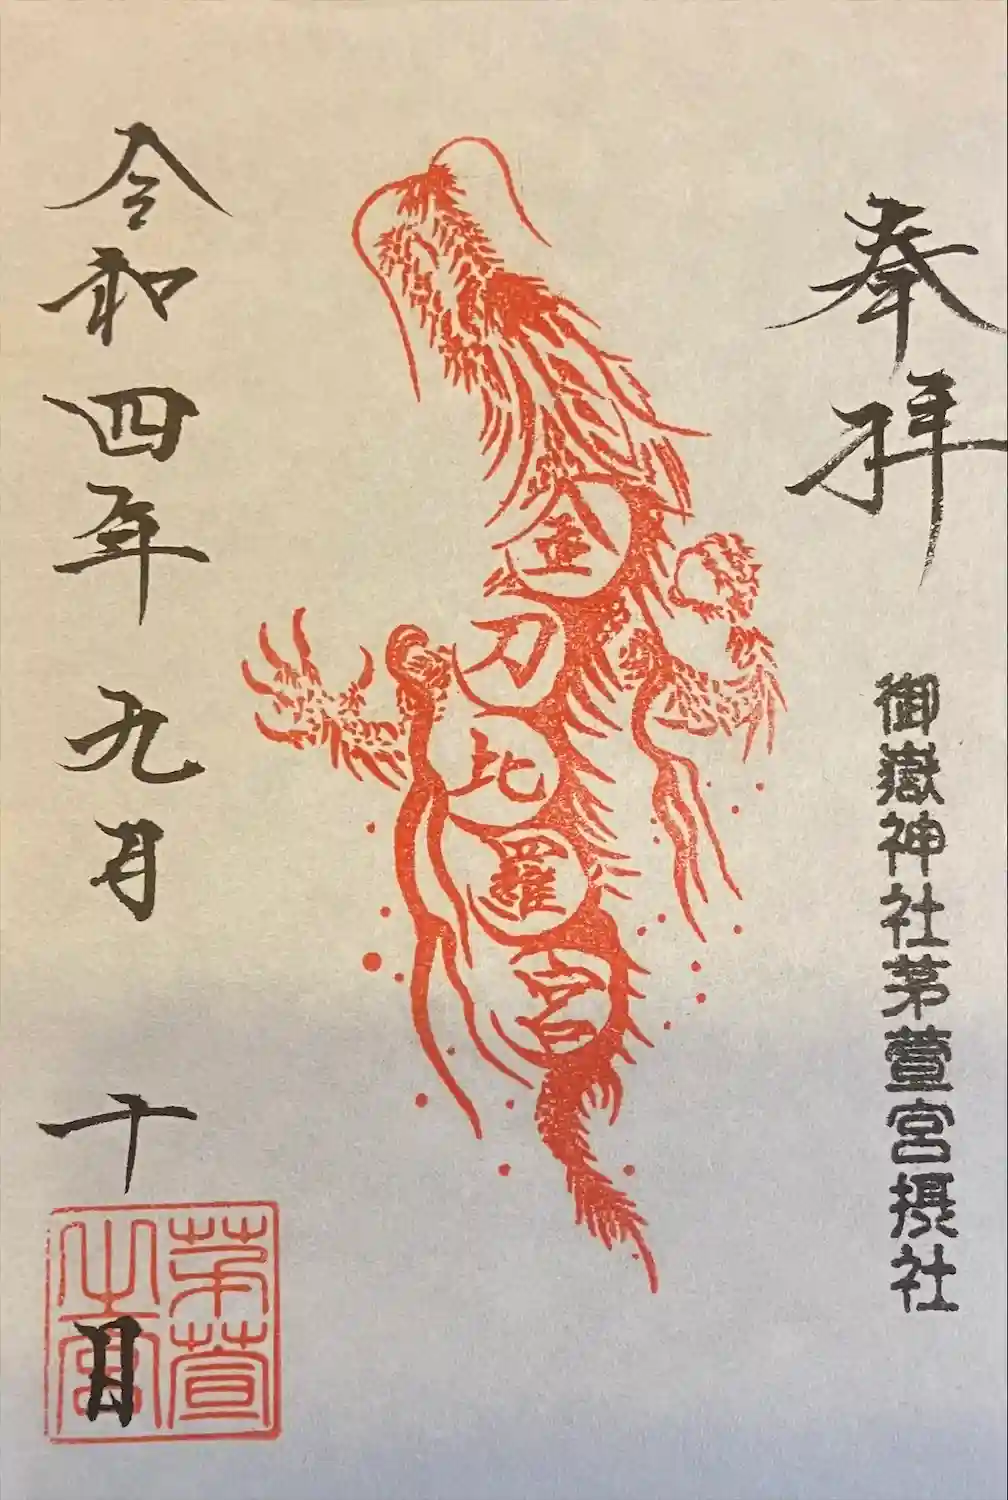 奉拝
御嶽神社茅萱宮摂社
金刀比羅宮
令和四年九月十日
茅萱之宮